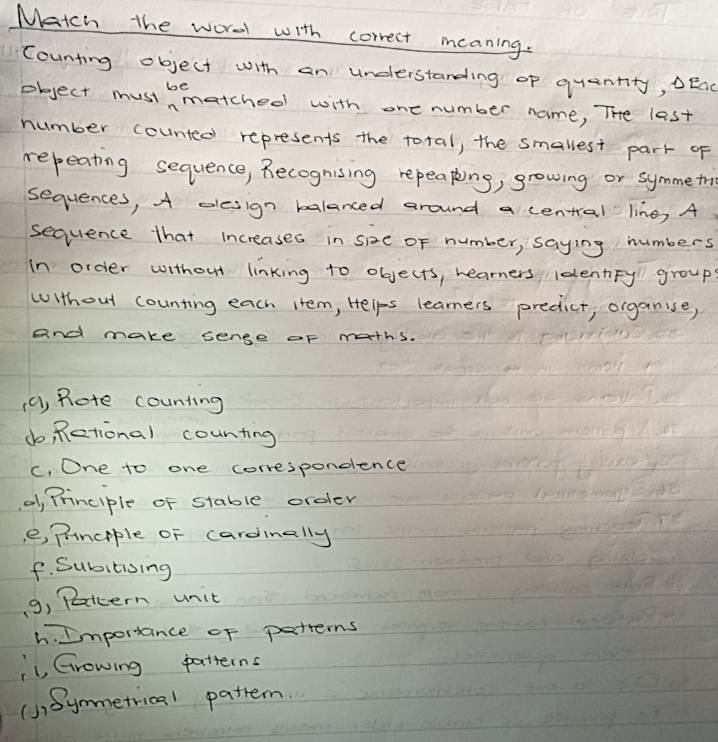 Match the word with correct meaning.
Counting object with an understanding of quantity, Eac
object must be matched with one number name, The last
number counted represents the total, the smallest part of
repeating sequence, Recognising repeating, growing or symmetric
sequences, A design balanced around a central line, A
sequence that increases in size of number, saying numbers
in order without linking to objects, Learners identify groups
without counting each item, Helps learners predict, organise,
and make sense of maths.
a, Rote counting
b, Rational counting
c, One to one correspondence
d, Principle of stable order
e, Principle of cardinally
f. Subitising
g, Pattern unit
h. Importance of patterns
i, Growing patterns
(j), Symmetrical pattern.